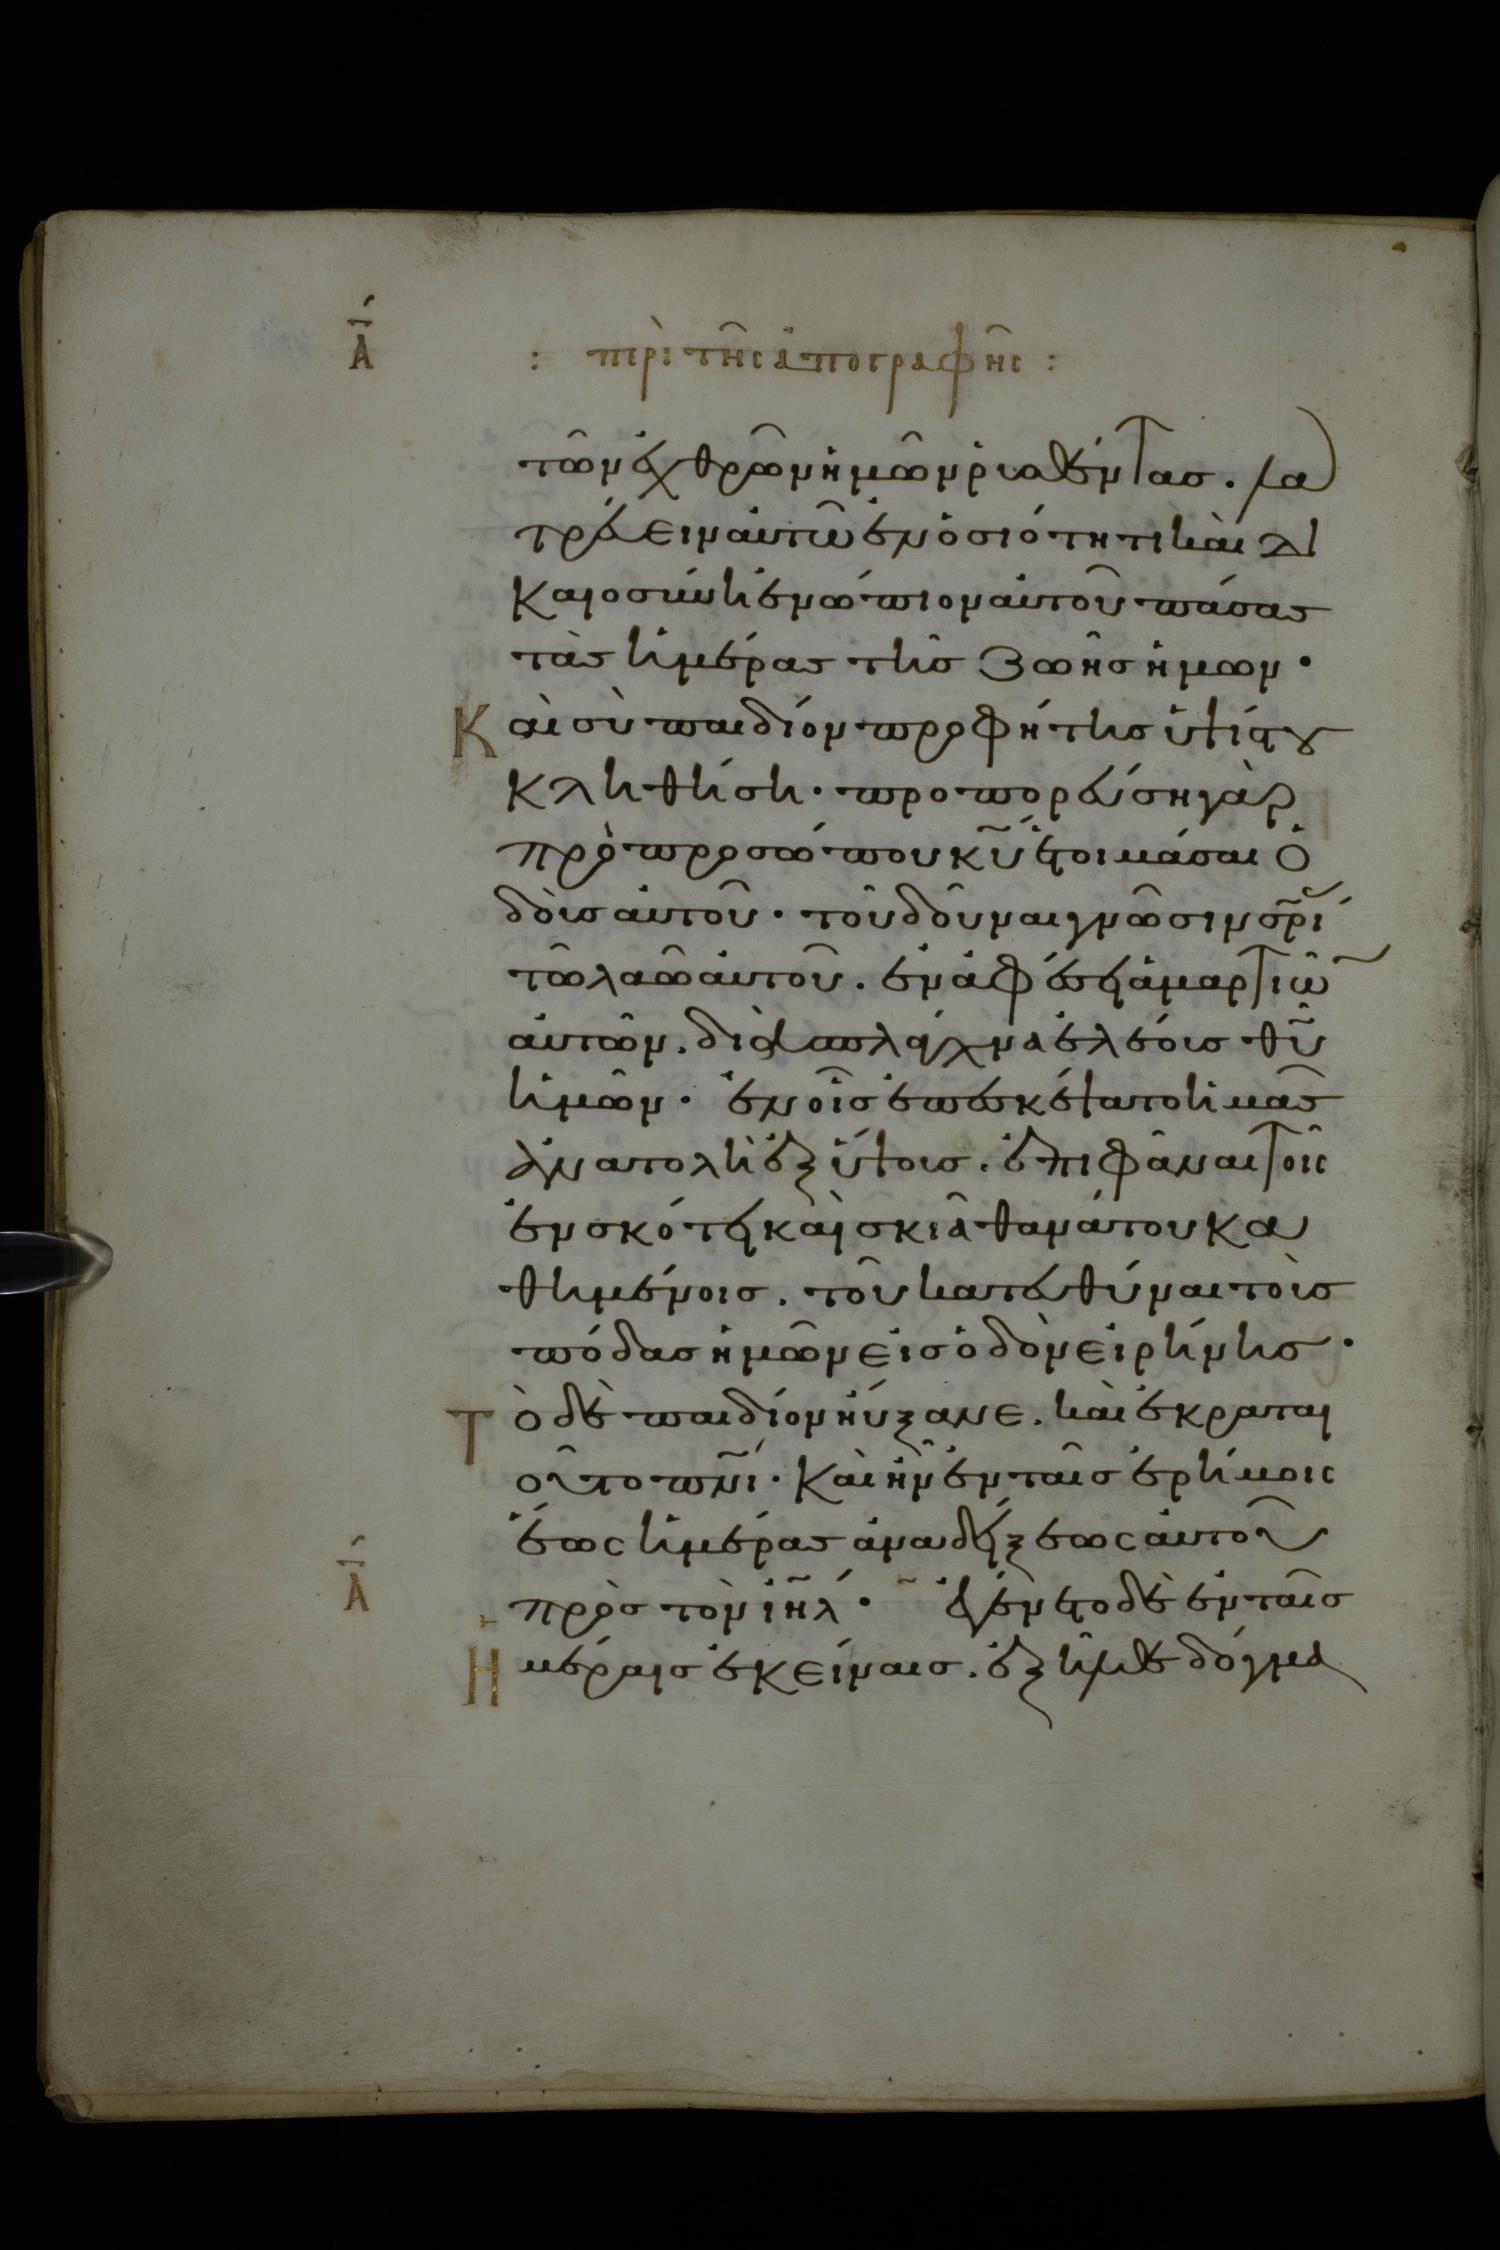 Α
: περὶ τῆς ἀπογραφῆς :
τῶν ἐχθρῶν ἡμῶν ῥυσθέντας. λα
τρεύειν αὐτῶ ἐν ὁσιότητι καὶ δι
καιοσύνη ἐνώπιον αὐτοῦ πάσας
τὰς ἡμέρας τῆς ζωῆς ἡμῶν·
Καὶ σὺ παιδίον προφήτης ὑψίστου
κληθήση· προπορεύση γὰρ
πρὸ προσώπου κῦ ἑτοιμάσαι ὁ
δοὺς αὐτοῦ· τοῦ δοῦναι γνῶσιν σρί
τῶ λαῶ αὐτοῦ. ἐν ἀφέσει ἁμαρτιῶ
αὐτῶν. διὰ σπλάγχνα ἐλέους θῦ
ἡμῶν· ἐν οἷς ἐπεσκέψατο ἡμᾶς
ἀνατολὴ ἐξ ὕψους. ἐπιφᾶναι τοῖς
ἐν σκότει καὶ σκιᾶ θανάτου κα
θημένοις. τοῦ κατευθύναι τοὺς
πόδας ἡμῶν εἰς ὁδὸν εἰρήνης·
Τὸ δὲ παιδίον ηὔξανε. καὶ ἐκραται
οῦτο πνι· καὶ ἦν ἐν ταῖς ἐρήμοις
ἕως ἡμέρας ἀναδείξεως αὐτοῦ
Α
πρὸς τὸν ιηλ· ἐγένετο δὲ ἐν ταῖς
Ἡμέραις ἐκείναις. ἐξῆλθε δόγμα